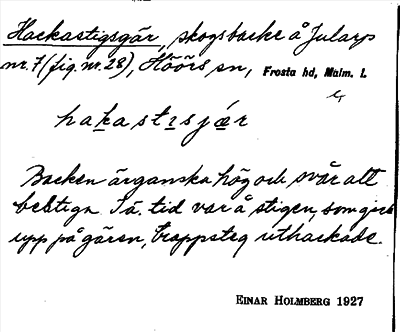 Hackastigsgär, skogsbacke å Jularps
nr. 7 (fig. nr. 28), Höörs sn, Frosta hd, Malm. l.
hakastɪsjær
Backen är ganska hög och svår att
bestiga. I ä. tid var å stigen, som gick
upp på gären, trappsteg uthackade.
EINAR HOLMBERG 1927